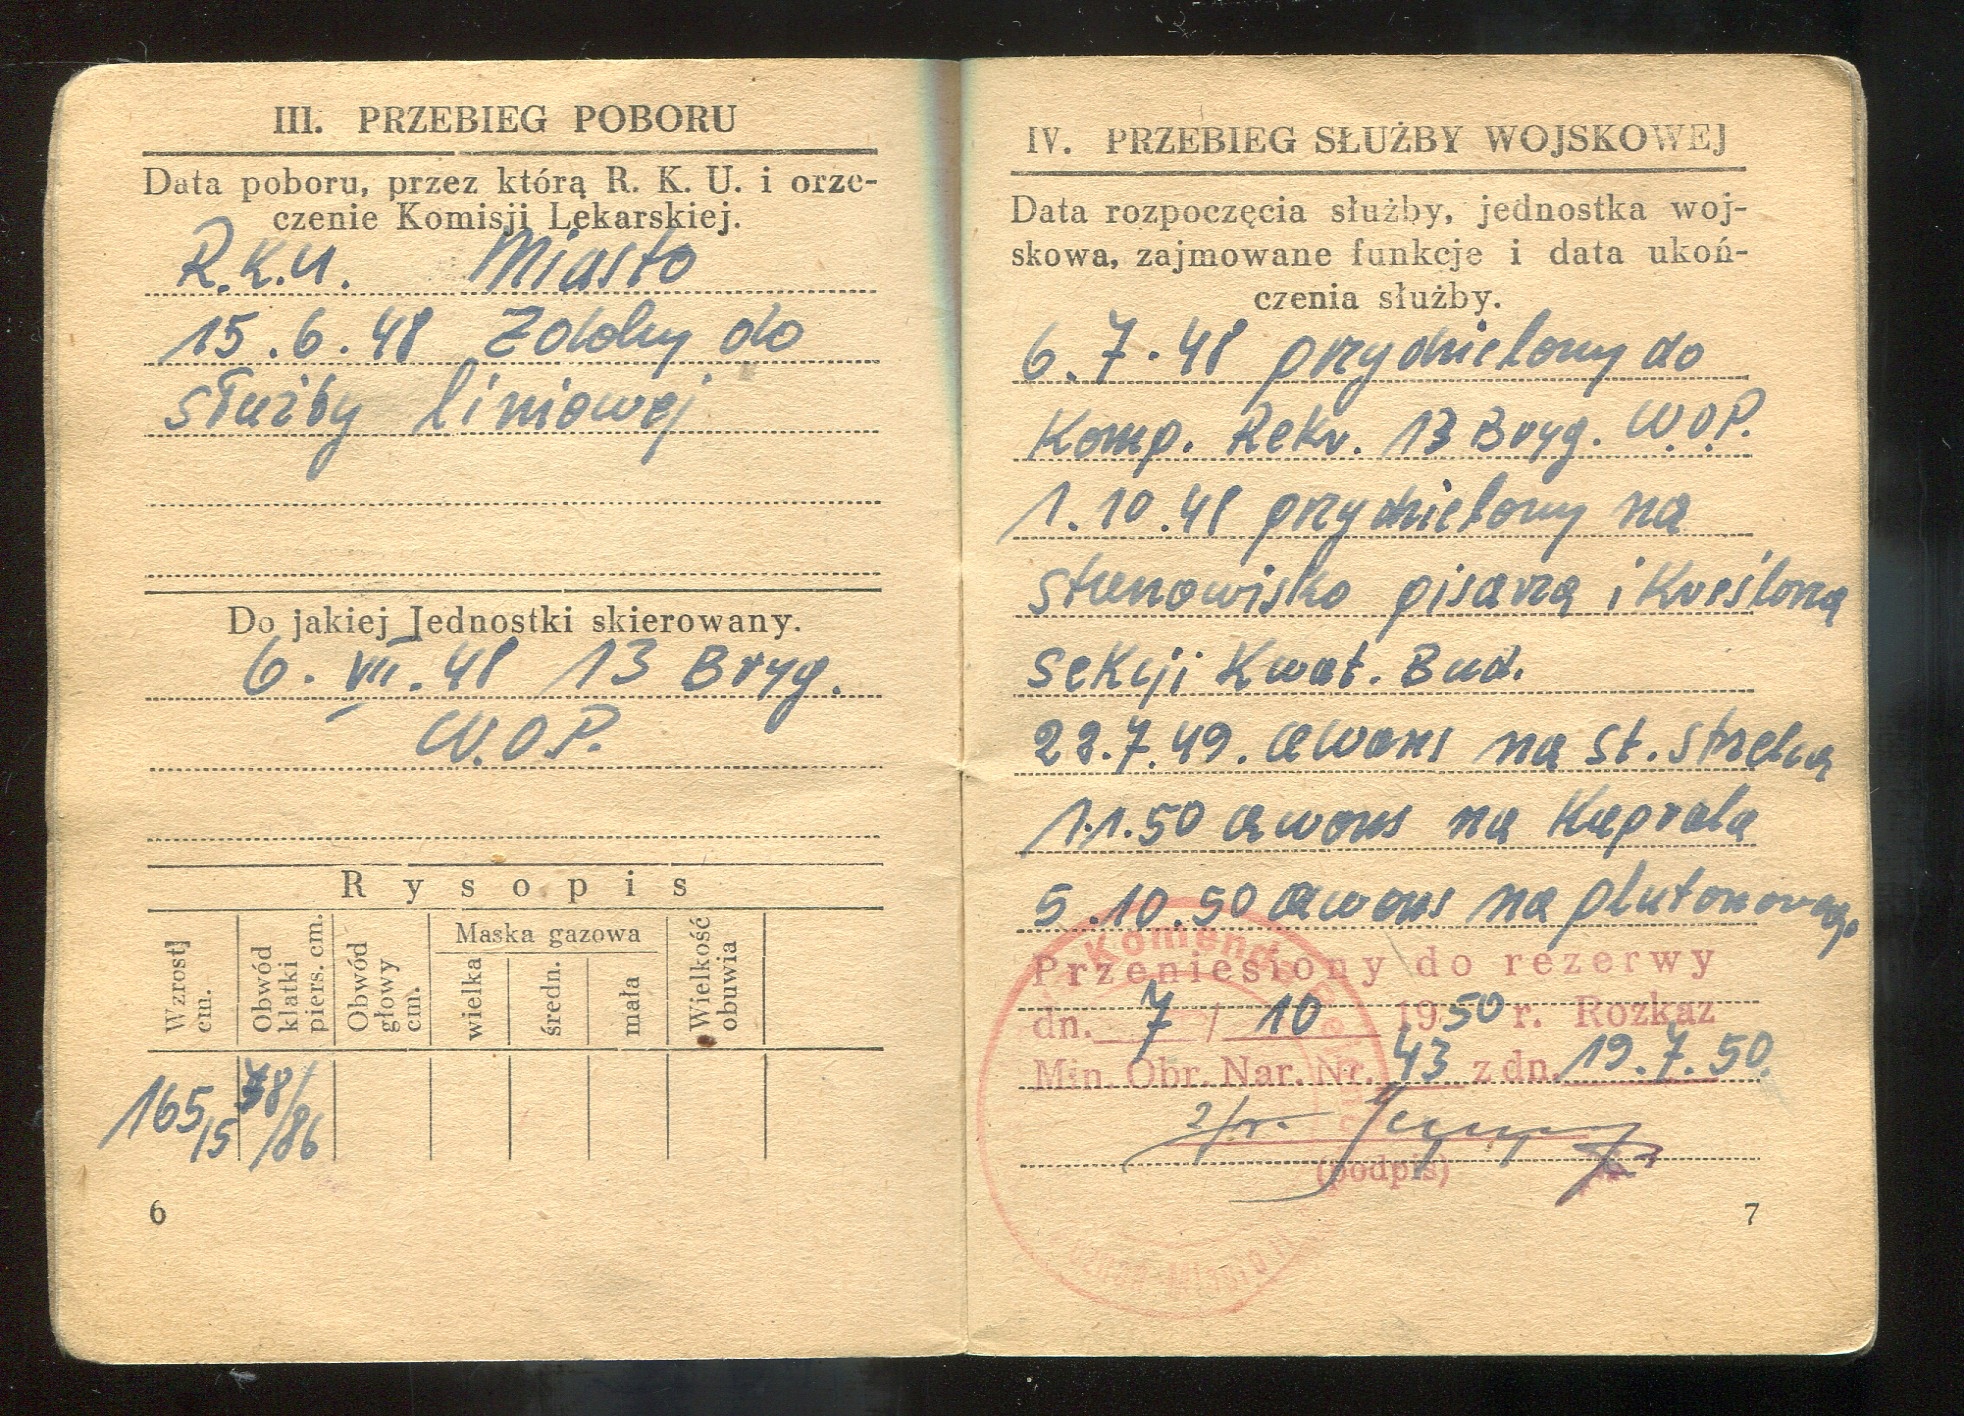 III. PRZEBIEG POBORU
Data poboru, przez którą R. K. U. i orze-
czenie Komisji Lekarskiej.
R.K.U. Miasto
15.6.48 Zdolny do
służby liniowej
Do jakiej Jednostki skierowany.
6. VII. 48 13 Bryg.
W.O.P.
Rysopis
Wzrost cm.
Obwód klatki piers. cm.
Obwód głowy cm.
Maska gazowa
wielka
średn.
mała
Wielkość obuwia
165/15
/86
6
IV. PRZEBIEG SŁUŻBY WOJSKOWEJ
Data rozpoczęcia służby, jednostka woj-
skowa, zajmowane funkcje i data ukoń-
czenia służby.
6.7.48 przydzielony do
Komp. Rekr. 13 Bryg. W.O.P.
1.10.48 przydzielony na
stanowisko pisarza i Kreślarza
sekcji Kwat. Bud.
22.7.49. awans na st. strzelca
1.1.50 awans na Kaprala
5.10.50 awans na plutonowego
Przeniesiony do rezerwy
dn. 7 / 10 1950 r. Rozkaz
Min. Obr. Nar. Nr. 43 z dn. 19.7.50.
(podpis)
7